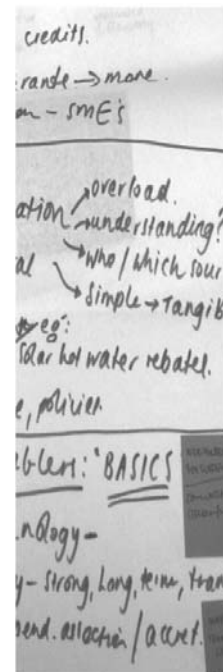 credits.
rande → more.
- SME's
overload.
ation → understanding?
who / which sour
al
Simple → Tangib
eg:
Solar hot water rebates.
e, policies.
blem: 'BASICS
nology -
y - Strong, Long, term, tran
end. / accret.